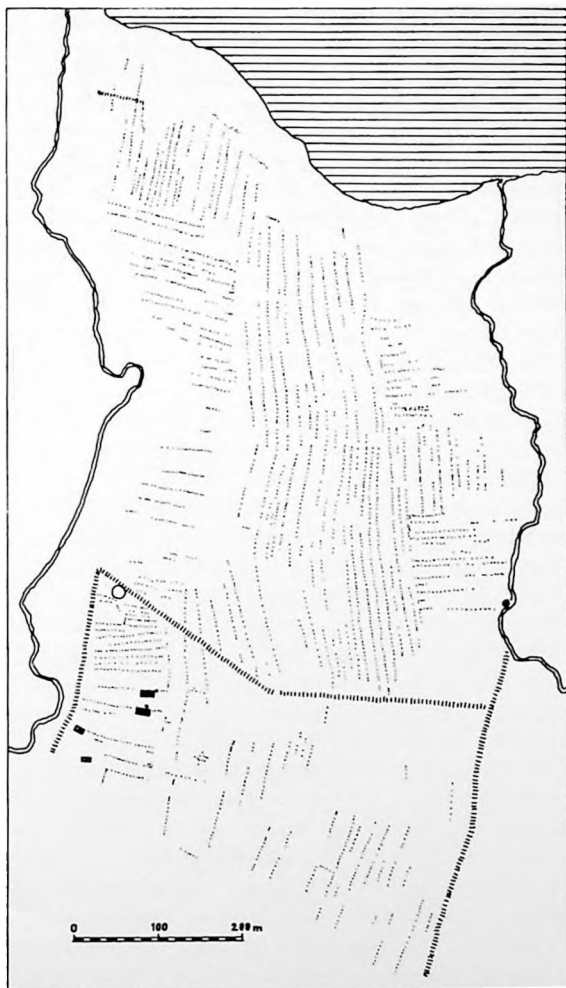 0 100 200 m